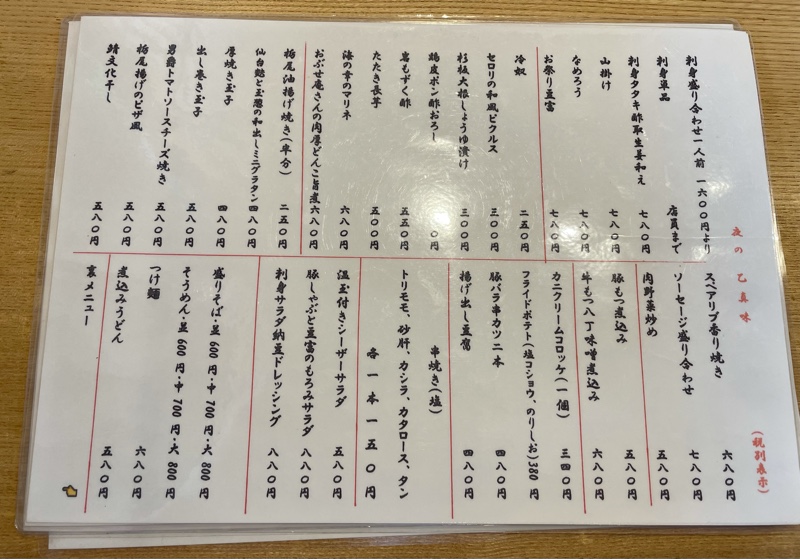 夜の乙真味
(税別表示)
刺身盛り合わせ一人前 一六〇〇円より
刺身単品 店員まで
刺身タタキ酢取生姜和え 七八〇円
山掛け 七八〇円
なめろう 七八〇円
お祭り豆富 七八〇円
冷奴 二五〇円
セロリの和風ピクルス 三〇〇円
杉板大根しょうゆ漬け 三〇〇円
鶏皮ポン酢おろし 〇円
岩もずく酢 五五〇円
たたき長芋 五〇〇円
海の幸のマリネ 六八〇円
おぶせ庵さんの肉厚どんこ旨煮 六八〇円
栃尾油揚げ焼き(半分) 二五〇円
仙台麩と玉葱の和出しミニグラタン 四八〇円
厚焼き玉子 四八〇円
出し巻き玉子 五八〇円
男爵トマトソースチーズ焼き 五八〇円
栃尾揚げのピザ風 五八〇円
鯖文化干し 五八〇円
スペアリブ香り焼き 六八〇円
ソーセージ盛り合わせ 七八〇円
肉野菜炒め 五八〇円
豚もつ煮込み 五八〇円
牛もつ八丁味噌煮込み 六八〇円
カニクリームコロッケ(一個) 三四〇円
フライドポテト(塩コショウ、のりしお) 380円
豚バラ串カツ二本 四八〇円
揚げ出し豆腐 四八〇円
串焼き(塩)
トリモモ、砂肝、カシラ、カタロース、タン
各一本一五〇円
温玉付きシーザーサラダ 五八〇円
豚しゃぶと豆富のもろみサラダ 八八〇円
刺身サラダ納豆ドレッシング 八八〇円
盛りそば・並 600円・中 700円・大 800円
そうめん・並 600円・中 700円・大 800円
つけ麺 六八〇円
煮込みうどん 五八〇円
裏メニュー